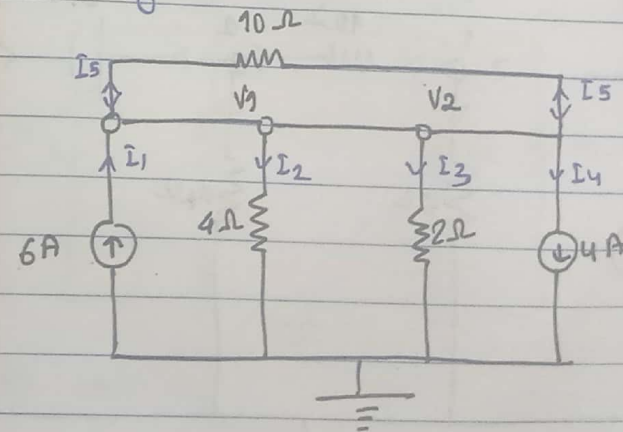 10 Ω
I5
V1
V2
I5
I1
I2
I3
I4
6A
4Ω
2Ω
4A